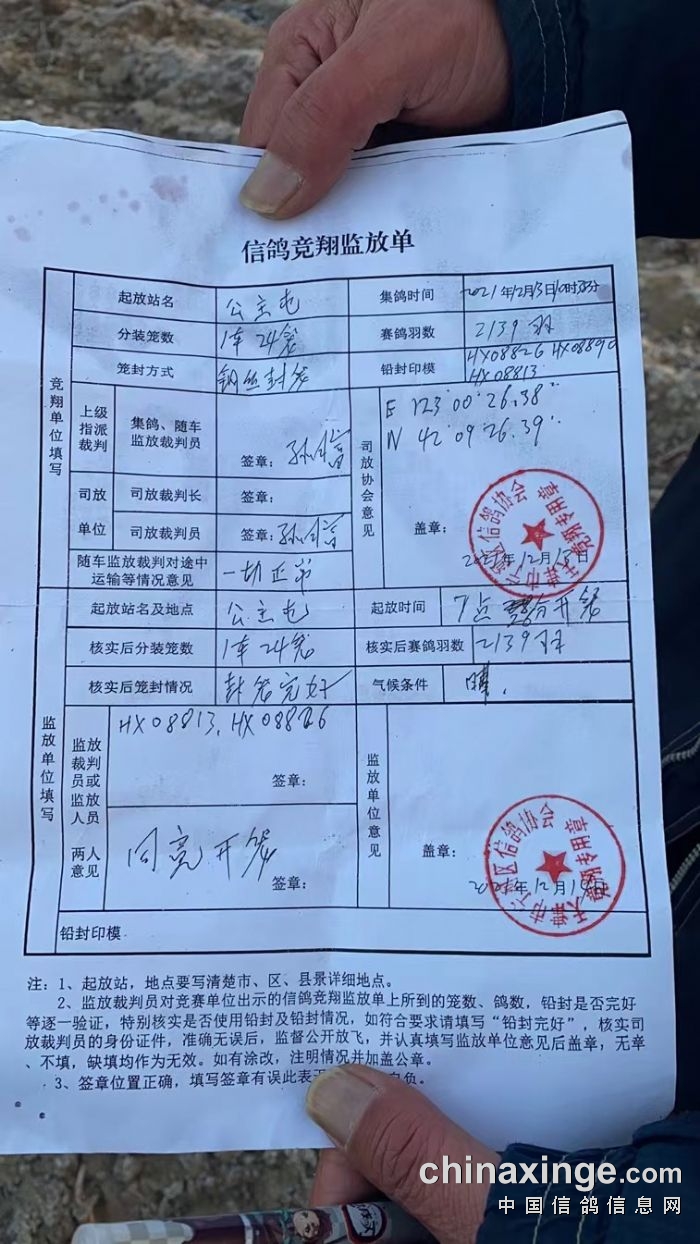 信鸽竞翔监放单
竞翔单位填写
起放站名 公主屯 集鸽时间 2021年12月13日
分装笼数 1车24笼 赛鸽羽数 2139羽
笼封方式 钢丝封笼 铅封印模 HX08826 HX08890
HX08813
上级指派裁判 集鸽、随车监放裁判员 签章:
司放单位 司放裁判长 签章:
司放裁判员 签章:
司放协会意见 E 123°00′26.38″
N 42°09′26.39″
盖章:
2021年12月13日
区信鸽协会
竞翔专用章
天津市
随车监放裁判对途中
运输等情况意见 一切正常
监放单位填写
起放站名及地点 公主屯 起放时间 7点 分开笼
核实后分装笼数 1车24笼 核实后赛鸽羽数 2139羽
核实后笼封情况 封笼完好 气候条件 晴.
监放裁判员或监放人员 HX08813, HX08826
签章:
两人意见 同意开笼
签章:
监放单位意见
盖章:
区信鸽协会
竞翔专用章
天津市
2021年12月14日
铅封印模
注:1、起放站,地点要写清楚市、区、县景详细地点。
2、监放裁判员对竞赛单位出示的信鸽竞翔监放单上所到的笼数、鸽数,铅封是否完好
等逐一验证,特别核实是否使用铅封及铅封情况,如符合要求请填写“铅封完好”,核实司
放裁判员的身份证件,准确无误后,监督公开放飞,并认真填写监放单位意见后盖章,无章
、不填,缺填均作为无效。如有涂改,注明情况并加盖公章。
3、签章位置正确,填写签章有误此表 自负。
chinaxinge.com
中国信鸽信息网